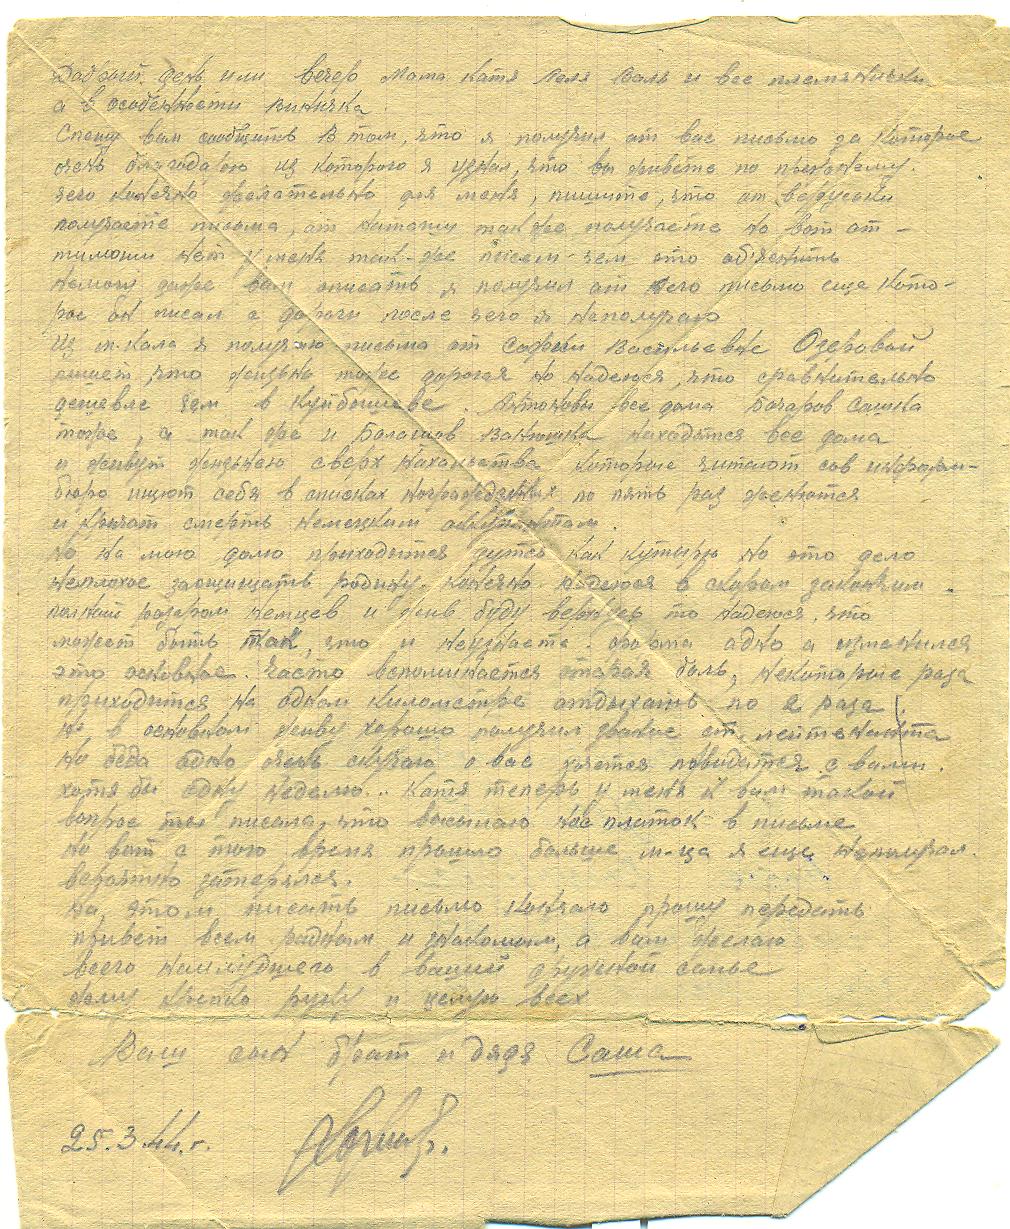 Добрый день или вечер Мама Катя Леля Валь и все племяники
а в особенности Виничка.
Спешу вам сообщить в том, что я получил от вас письмо за которое
очень благодарю из которого я узнал, что вы живете по прежнему.
чего конечно желательно для меня, пишите, что от Веруськи
получаете письма, от Наташи также получаете но вот от -
тимоши нет у меня так-же писем чем это объеснить
немогу даже вам описать я получил от него письмо еще кото-
рое он писал с дороги после чего я неполучаю
Из м-кала я получаю письма от Софьи Васильевне Озеровой
пишет, что жизнь тоже дорогая но надеюся, что сравнительно
дешевле чем в Куйбышеве. Антоновы все дома Бочаров Сашка
тоже, а так же и Балашов Ванюшка находятся все дома
и живут жизнью сверх нахальства которые читают сов информ-
бюро ищют себя в списках награжденных по пять раз женются
и кричат смерть немецким оккупантам.
но на мою долю приходится
неплохое защищать родину. конечно надеюся в скором закончим
полный разгром немцев и жив буду вернусь то надеюся, что
может быть так, что и неузнаете. форма одно а изменился
это основное. часто вспоминается старая быль, некоторые раза
приходится на одном километре отдыхать по 2 раза.
Но в основном живу хорошо получил звание ст. лейтенанта
но беда одно очень скучаю о вас хочется повидатся с вами.
хотя бы одну неделю.. Катя теперь у меня к вам такой
вопрос ты писала, что высылаю нос платок в письме
но вот с того время прошло больше м-ца я еще неполучал.
вероятно затерялся.
На, этом писать письмо кончаю прошу передать
привет всем родным и знакомым, а вам желаю
всего наилудшего в вашей дружной семье
жму крепко руку и целую всех
Ваш сын брат и дядя Саша
25.3.44.г.